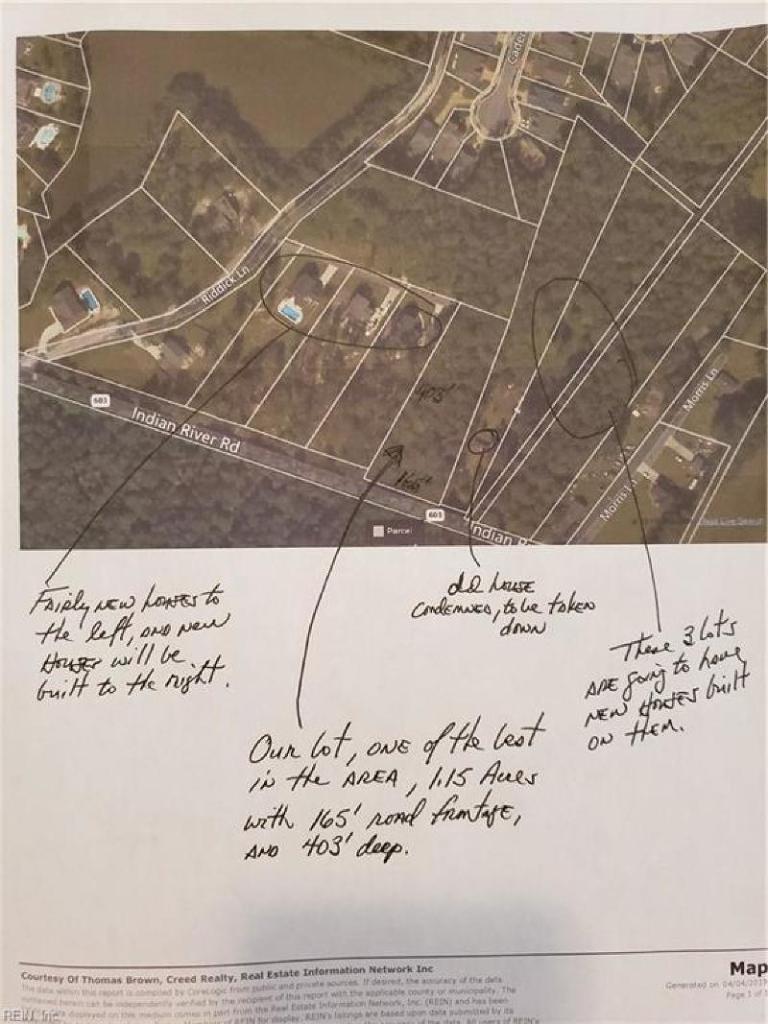 Caden
Riddick Ln
603
Indian River Rd
403'
165'
Morris Ln
Morris Ln
603
Parcel
Indian R
Fairly new homes to
the left, and new
Houses will be
built to the right.
old house
condemned, to be taken
down
These 3 lots
are going to have
new homes built
on them.
Our lot, one of the best
in the area, 1.15 Acres
with 165' road frontage,
and 403' deep.
Courtesy Of Thomas Brown, Creed Realty, Real Estate Information Network Inc
Map
The data within this report is compiled by CoreLogic from public and private sources. If desired, the accuracy of the data
Generated on 04/04/2019
contained herein can be independently verified by the recipient of this report with the applicable county or municipality. The
Page 1 of
displayed on this medium comes in part from the Real Estate Information Network, Inc. (REIN) and has been
of REIN for display. REIN's listings are based upon data submitted by its
REIN, Inc.